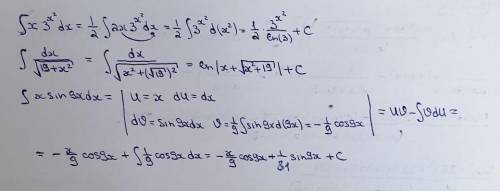 ∫x 3^{x²} dx = 1/2 ∫2x 3^{x²} dx = 1/2 ∫3^{x²} d(x²) = 1/2 3^{x²}/ln(3) + C
∫ dx/√(19+x²) = ∫ dx/√(x²+(√19)²) = ln|x+√(x²+19)| + C
∫ x sin9x dx = | u = x  du = dx
dϑ = sin9x dx  ϑ = 1/9 ∫sin9x d(9x) = -1/9 cos9x | = uϑ - ∫ϑdu =
= - x/9 cos9x + ∫ 1/9 cos9x dx = - x/9 cos9x + 1/81 sin9x + C